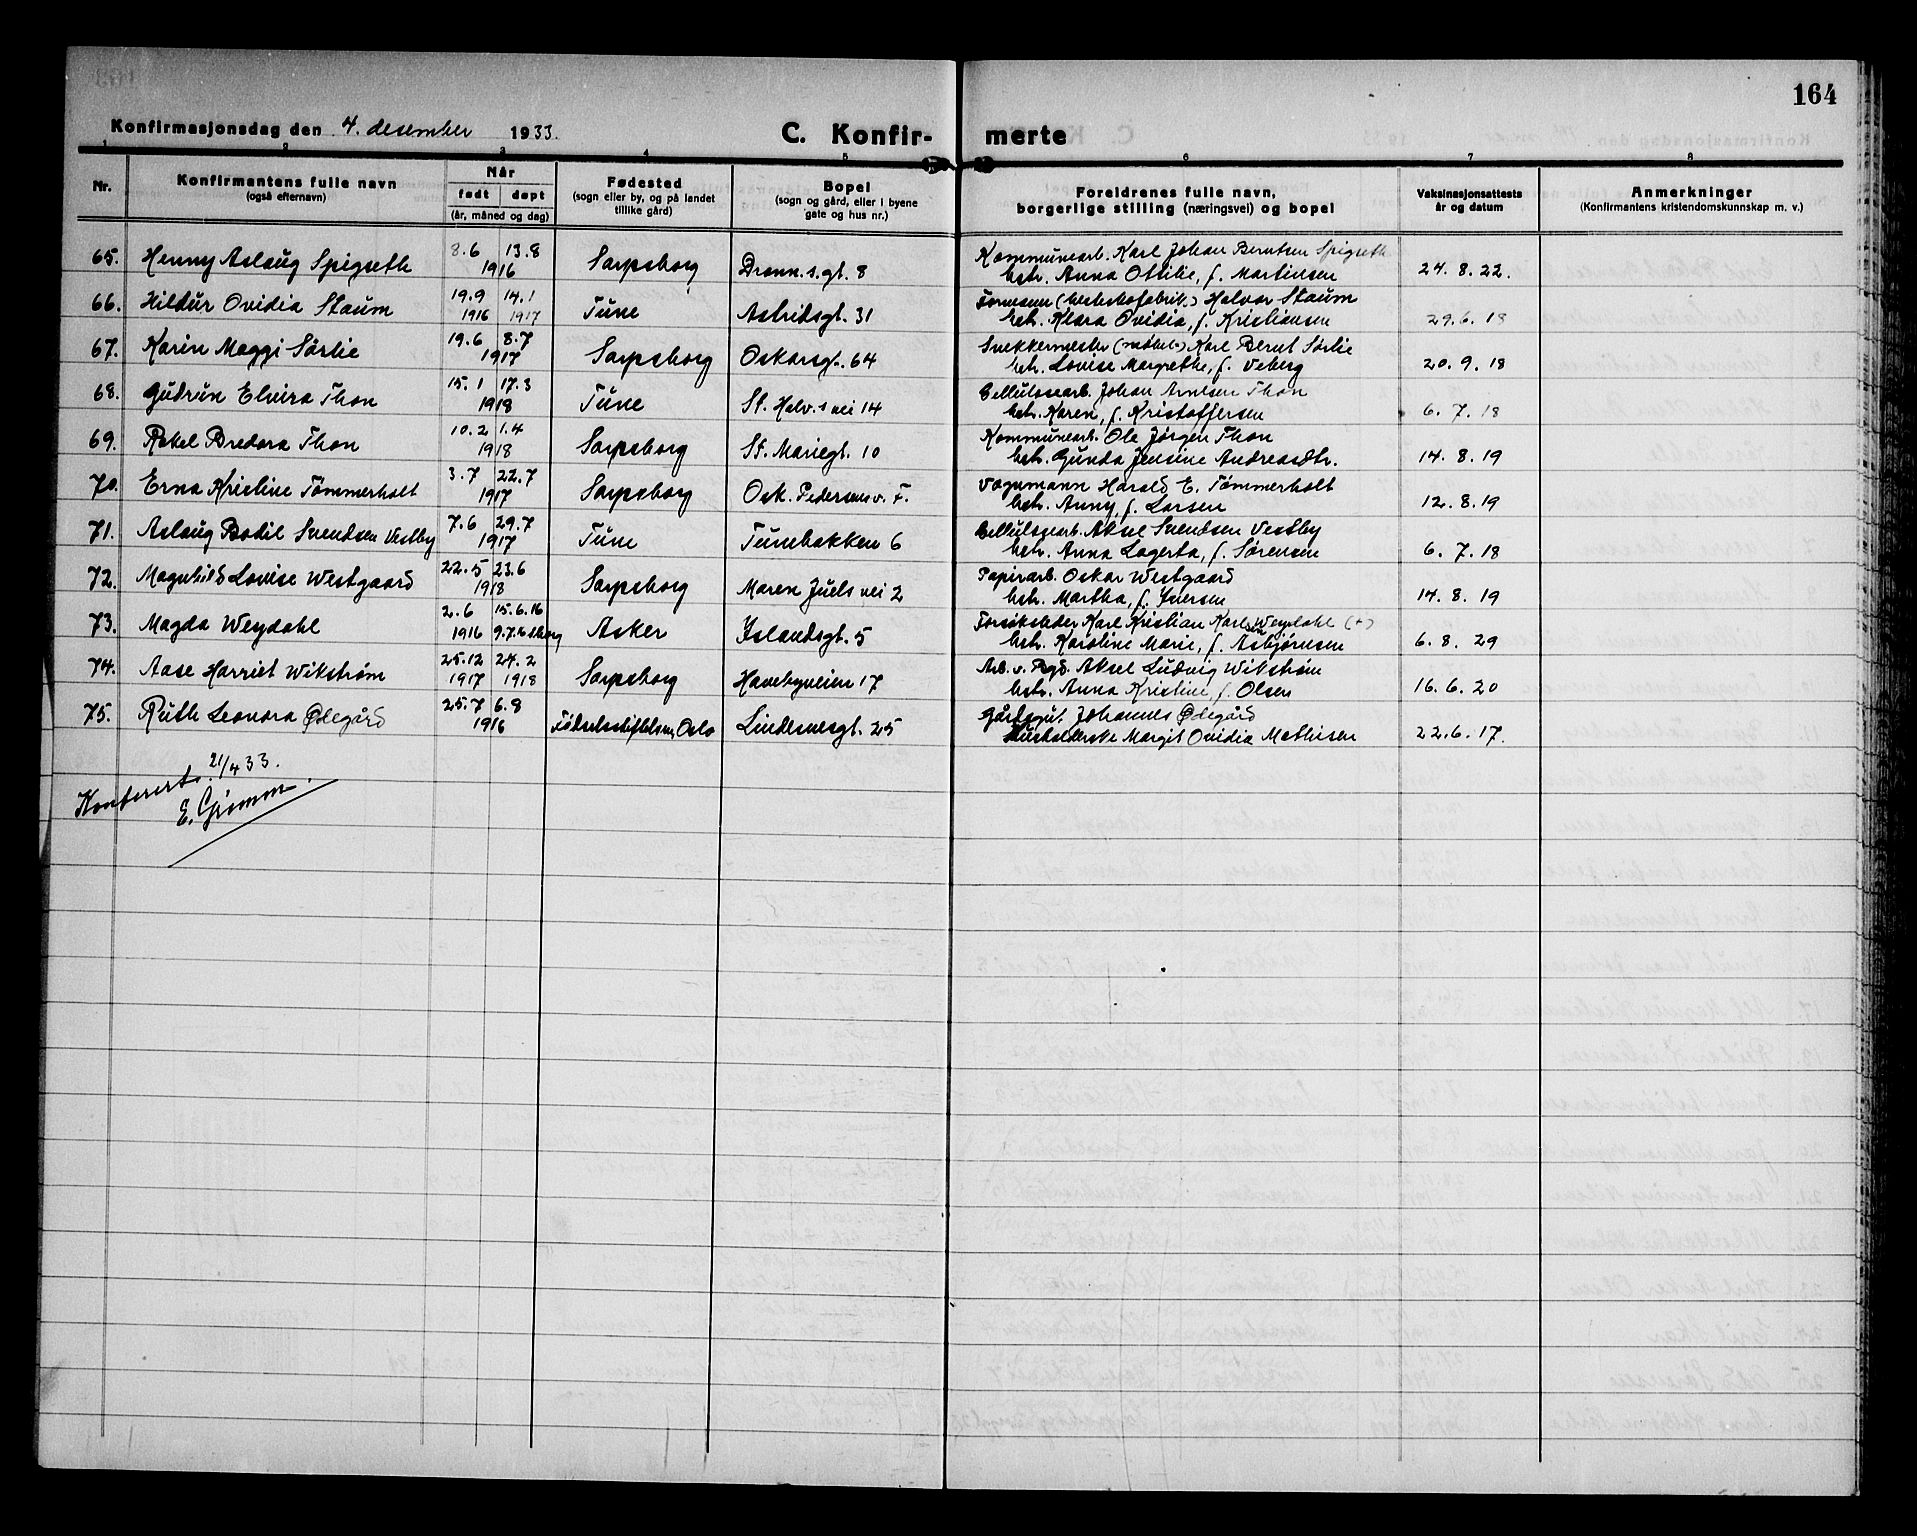 164
Konfirmasjonsdag den 4. desember 1933.
C. Konfir-
merte
1 2 3 4 5 6 7 8
Nr. Konfirmantens fulle navn (også efternavn) Når født døpt (år, måned og dag) Fødested (sogn eller by, og på landet tillike gård) Bopel (sogn og gård, eller i byene gate og hus nr.) Foreldrenes fulle navn, borgerlige stilling (næringsvei) og bopel Vaksinasjonsattests år og datum Anmerkninger (Konfirmantens kristendomskunnskap m. v.)
65. Henny Aslaug Spigseth 8.6 13.8 1916 Sarpsborg Dronn.s.gt. 8 Kommunearb. Karl Johan Berntsen Spigseth
hstr. Anna Ottilie, f. Martinsen 24.8.22.
66. Hildur Ovidia Staum 19.9 1916 14.1 1917 Tune Astridsgt. 31 Formann Halvor Staum
hstr. Klara Ovidia, f. Kristiansen 29.6.18
67. Karin Maggi Sørlie 19.6 8.7 1917 Sarpsborg Oskarsgt. 64 Snekkermester (møbel.) Karl Bernt Sørlie
hstr. Lovise Margrethe, f. Veberg 20.9.18
68. Gudrun Elvira Thon 15.1 17.3 1918 Tune St. Halv.s vei 14 Cellulosearb. Johan Arntsen Thon
hstr. Karen, f. Kristoffersen 6.7.18
69. Rakel Bredora Thon 10.2 1.4 1918 Sarpsborg St. Mariegt. 10 Kommunearb. Ole Jørgen Thon
hstr. Gunda Jensine Andreasdtr. 14.8.19
70. Erna Kristine Tømmerholt 3.7 22.7 1917 Sarpsborg Osk. Pedersens v. F. Vognmann Harald E. Tømmerholt
hstr. Anny, f. Larsen 12.8.19
71. Aslaug Bodil Svendsen Vestby 7.6 29.7 1917 Tune Tunebakken 6 Cellulosearb. Aksel Svendsen Vestby
hstr. Anna Lagerta, f. Sørensen 6.7.18
72. Magnhild Lovise Westgaard 22.5 23.6 1918 Sarpsborg Maren Juels vei 2 Papirarb. Oskar Westgaard
hstr. Martha, f. Iversen 14.8.19
73. Magda Weydahl 2.6 1916 15.6.16 Asker Islandsgt. 5 Forsøksleder Karl Kristian Karlsen Weydahl (+)
hstr. Karoline Marie, f. Asbjørnsen 6.8.29
74. Aase Harriet Wikstrøm 25.12 1917 24.2 1918 Sarpsborg Havebyveien 17 Arb. v. Bgd. Aksel Ludvig Wikstrøm
hstr. Anna Kristine, f. Olsen 16.6.20
75. Ruth Leonora Ødegård 25.7 6.8 1916 Fødselsstiftelsen, Oslo Lindesnesgt. 25 Gårdsgut Johannes Ødegård
Husholderske Margit Ovidia Mathisen 22.6.17.
Konferert. 21/4 33.
E. Grømm